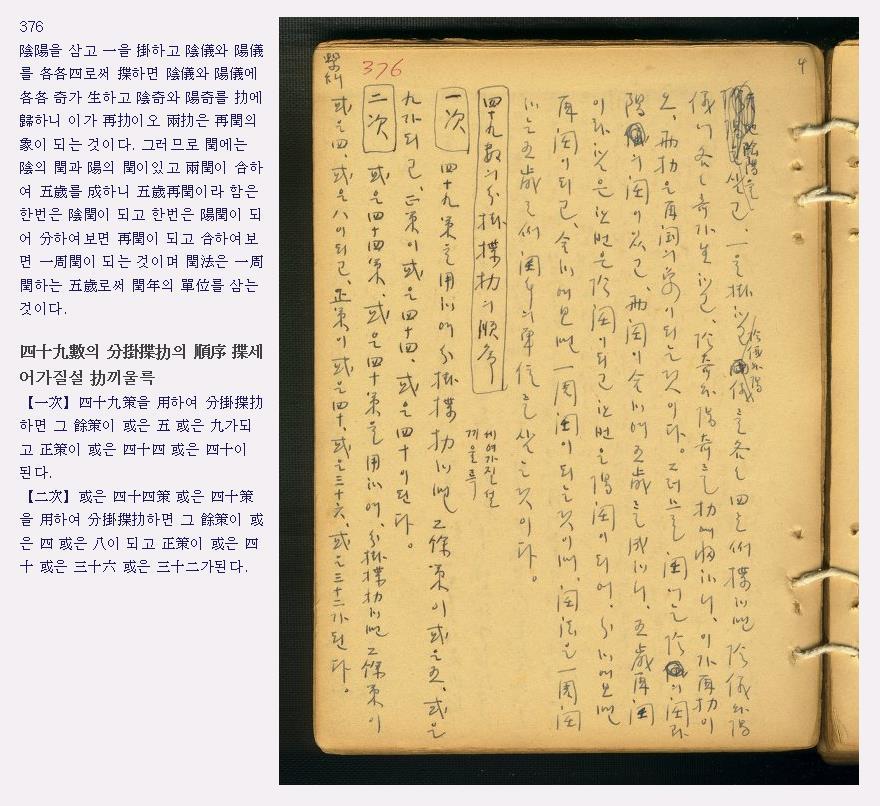 376
陰陽을 삼고 一을 掛하고 陰儀와 陽儀
를 各各四로써 揲하면 陰儀와 陽儀에
各各 奇가 生하고 陰奇와 陽奇를 扐에
歸하니 이가 再扐이오 兩扐은 再閏의
象이 되는 것이다. 그러므로 閏에는
陰의 閏과 陽의 閏이있고 兩閏이 合하
여 五歲를 成하니 五歲再閏이라 함은
한번은 陰閏이 되고 한번은 陽閏이 되
어 分하여보면 再閏이 되고 合하여보
면 一周閏이 되는 것이며 閏法은 一周
閏하는 五歲로써 閏年의 單位를 삼는
것이다.
四十九數의 分掛揲扐의 順序 揲세
어가질설 扐끼울륵
【一次】四十九策을 用하여 分掛揲扐
하면 그 餘策이 或은 五 或은 九가되
고 正策이 或은 四十四 或은 四十이
된다.
【二次】或은 四十四策 或은 四十策
을 用하여 分掛揲扐하면 그 餘策이 或
은 四 或은 八이 되고 正策이 或은 四
十 或은 三十六 或은 三十二가된다.
4
376
地陰陽을 삼고, 一을 掛하고 陰儀와 陽儀를 各各 四로써 揲하면 陰儀와 陽
儀에 各各 奇가 生하고, 陰奇와 陽奇를 扐에 歸하니, 이가 再扐이
오, 兩扐은 再閏의 象이 되는 것이다. 그러므로 閏에는 陰의 閏과
陽의 閏이 있고, 兩閏이 合하여 五歲를 成하니, 五歲再閏
이라 함은 한번은 陰閏이 되고 한번은 陽閏이 되어, 分하여보면
再閏이 되고, 合하여보면 一周閏이 되는 것이며, 閏法은 一周閏
하는 五歲로써 閏年의 單位를 삼는 것이다.
四十九數의 分掛揲扐의 順序
세여가질설
끼울륵
一次 四十九策을 用하여 分掛揲扐하면 그 餘策이 或은 五, 或은
九가되고, 正策이 或은 四十四, 或은 四十이 된다.
二次 或은 四十四策, 或은 四十策을 用하여, 分掛揲扐하면 그 餘策이
或은 四, 或은 八이 되고, 正策이 或은 四十, 或은 三十六, 或은 三十二가 된다.